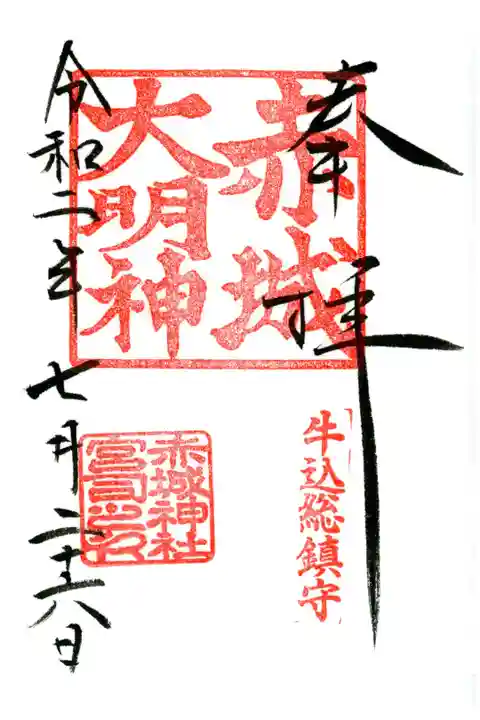 奉拝
赤城
大明神
牛込総鎮守
赤城神社
宮司之印
令和二年 七月二十六日